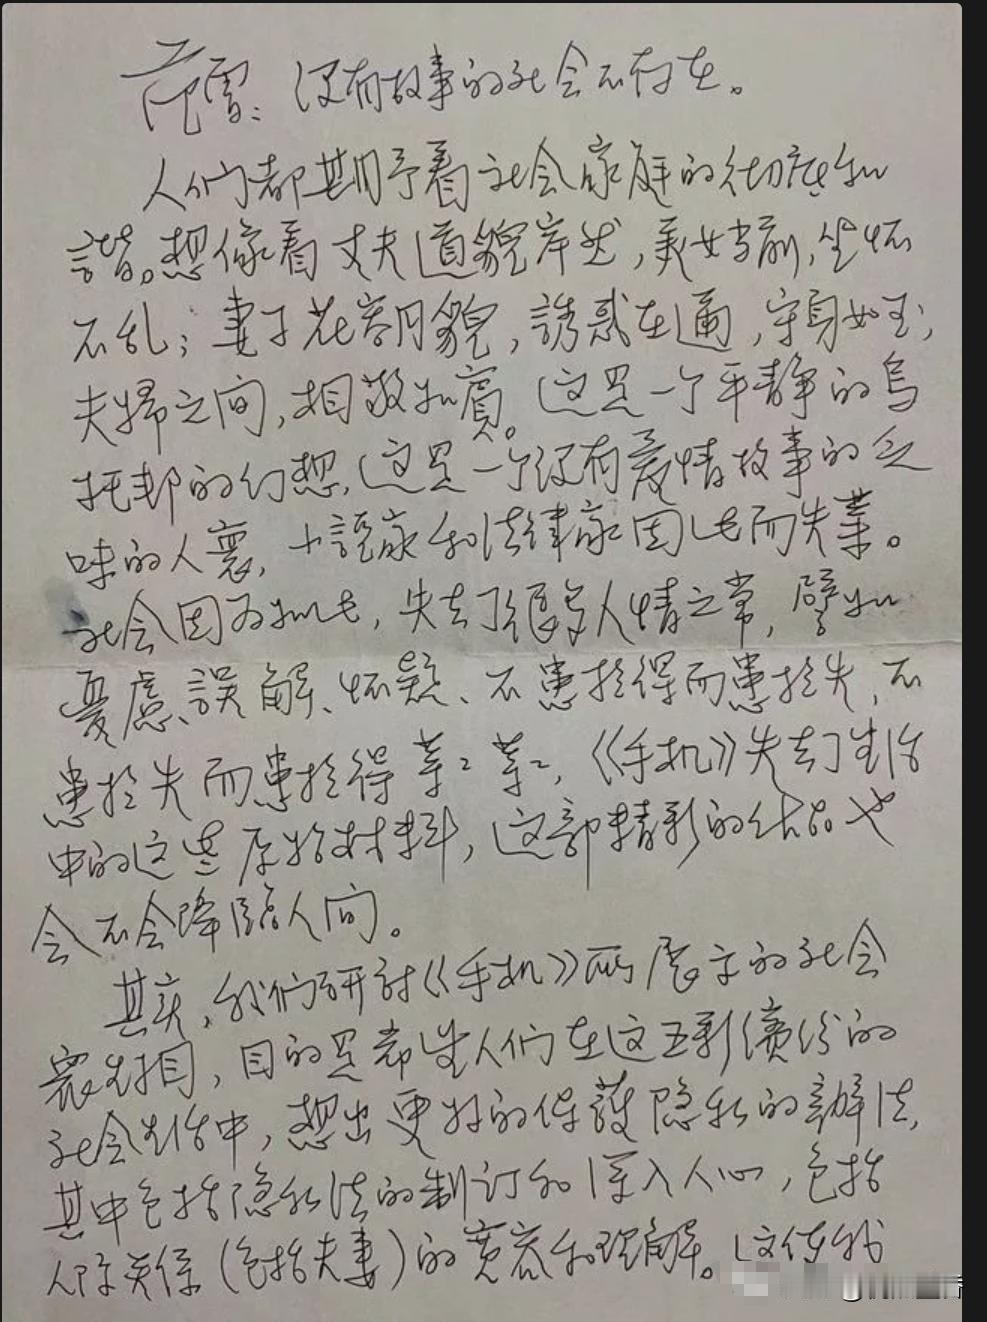 范雪：没有故事的社会不存在。
人们都期予着社会家庭的彻底和
諧。想像着丈夫道貌岸然，美女当前，坐怀
不乱；妻子花容月貌，誘惑在逼，守身如玉；
夫婦之间，相敬如賓。这是一个平静的烏
托邦的幻想，这是一个没有爱情故事的乏
味的人寰，小説家和法律家因此而失業。
社会因为如此，失去了很多人情之常，譬如
憂慮、誤解、怀疑、不患於得而患於失，不
患於失而患於得等等，《手机》失去了生活
中的这些原始材料，这部精彩的作品也
会不会降臨人间。
其实，我们研討《手机》所展示的社会
衆生相，目的是希望人们在这五彩繽纷的
社会生活中，想出更好的保護隐私的辦法，
其中包括隐私法的制订和深入人心，包括
人际关係（包括夫妻）的宽容和理解。这使我